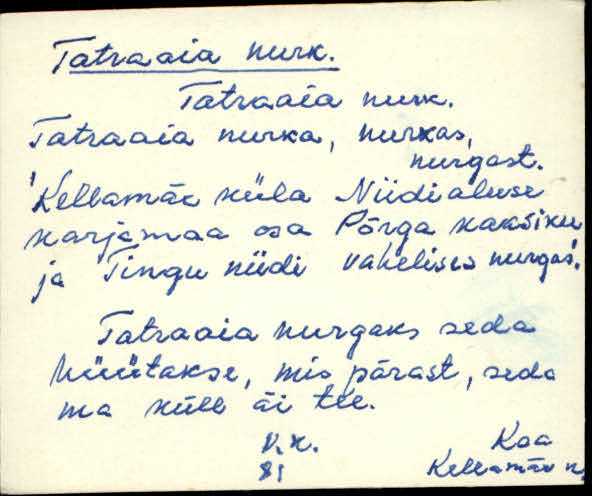 Tatraaia nurk.
Tatraaia nurk.
Tatraaia nurka, nurkas,
nurgast.
'Kellamäe küla Niidialuse
karjamaa osa Põrga kaksiku
ja Tingu niidi vahelises nurgas'.
Tatraaia nurgaks seda
hüütakse, mis pärast, seda
ma küll äi tee.
V.K. Kaa
81 Kellamäe k.